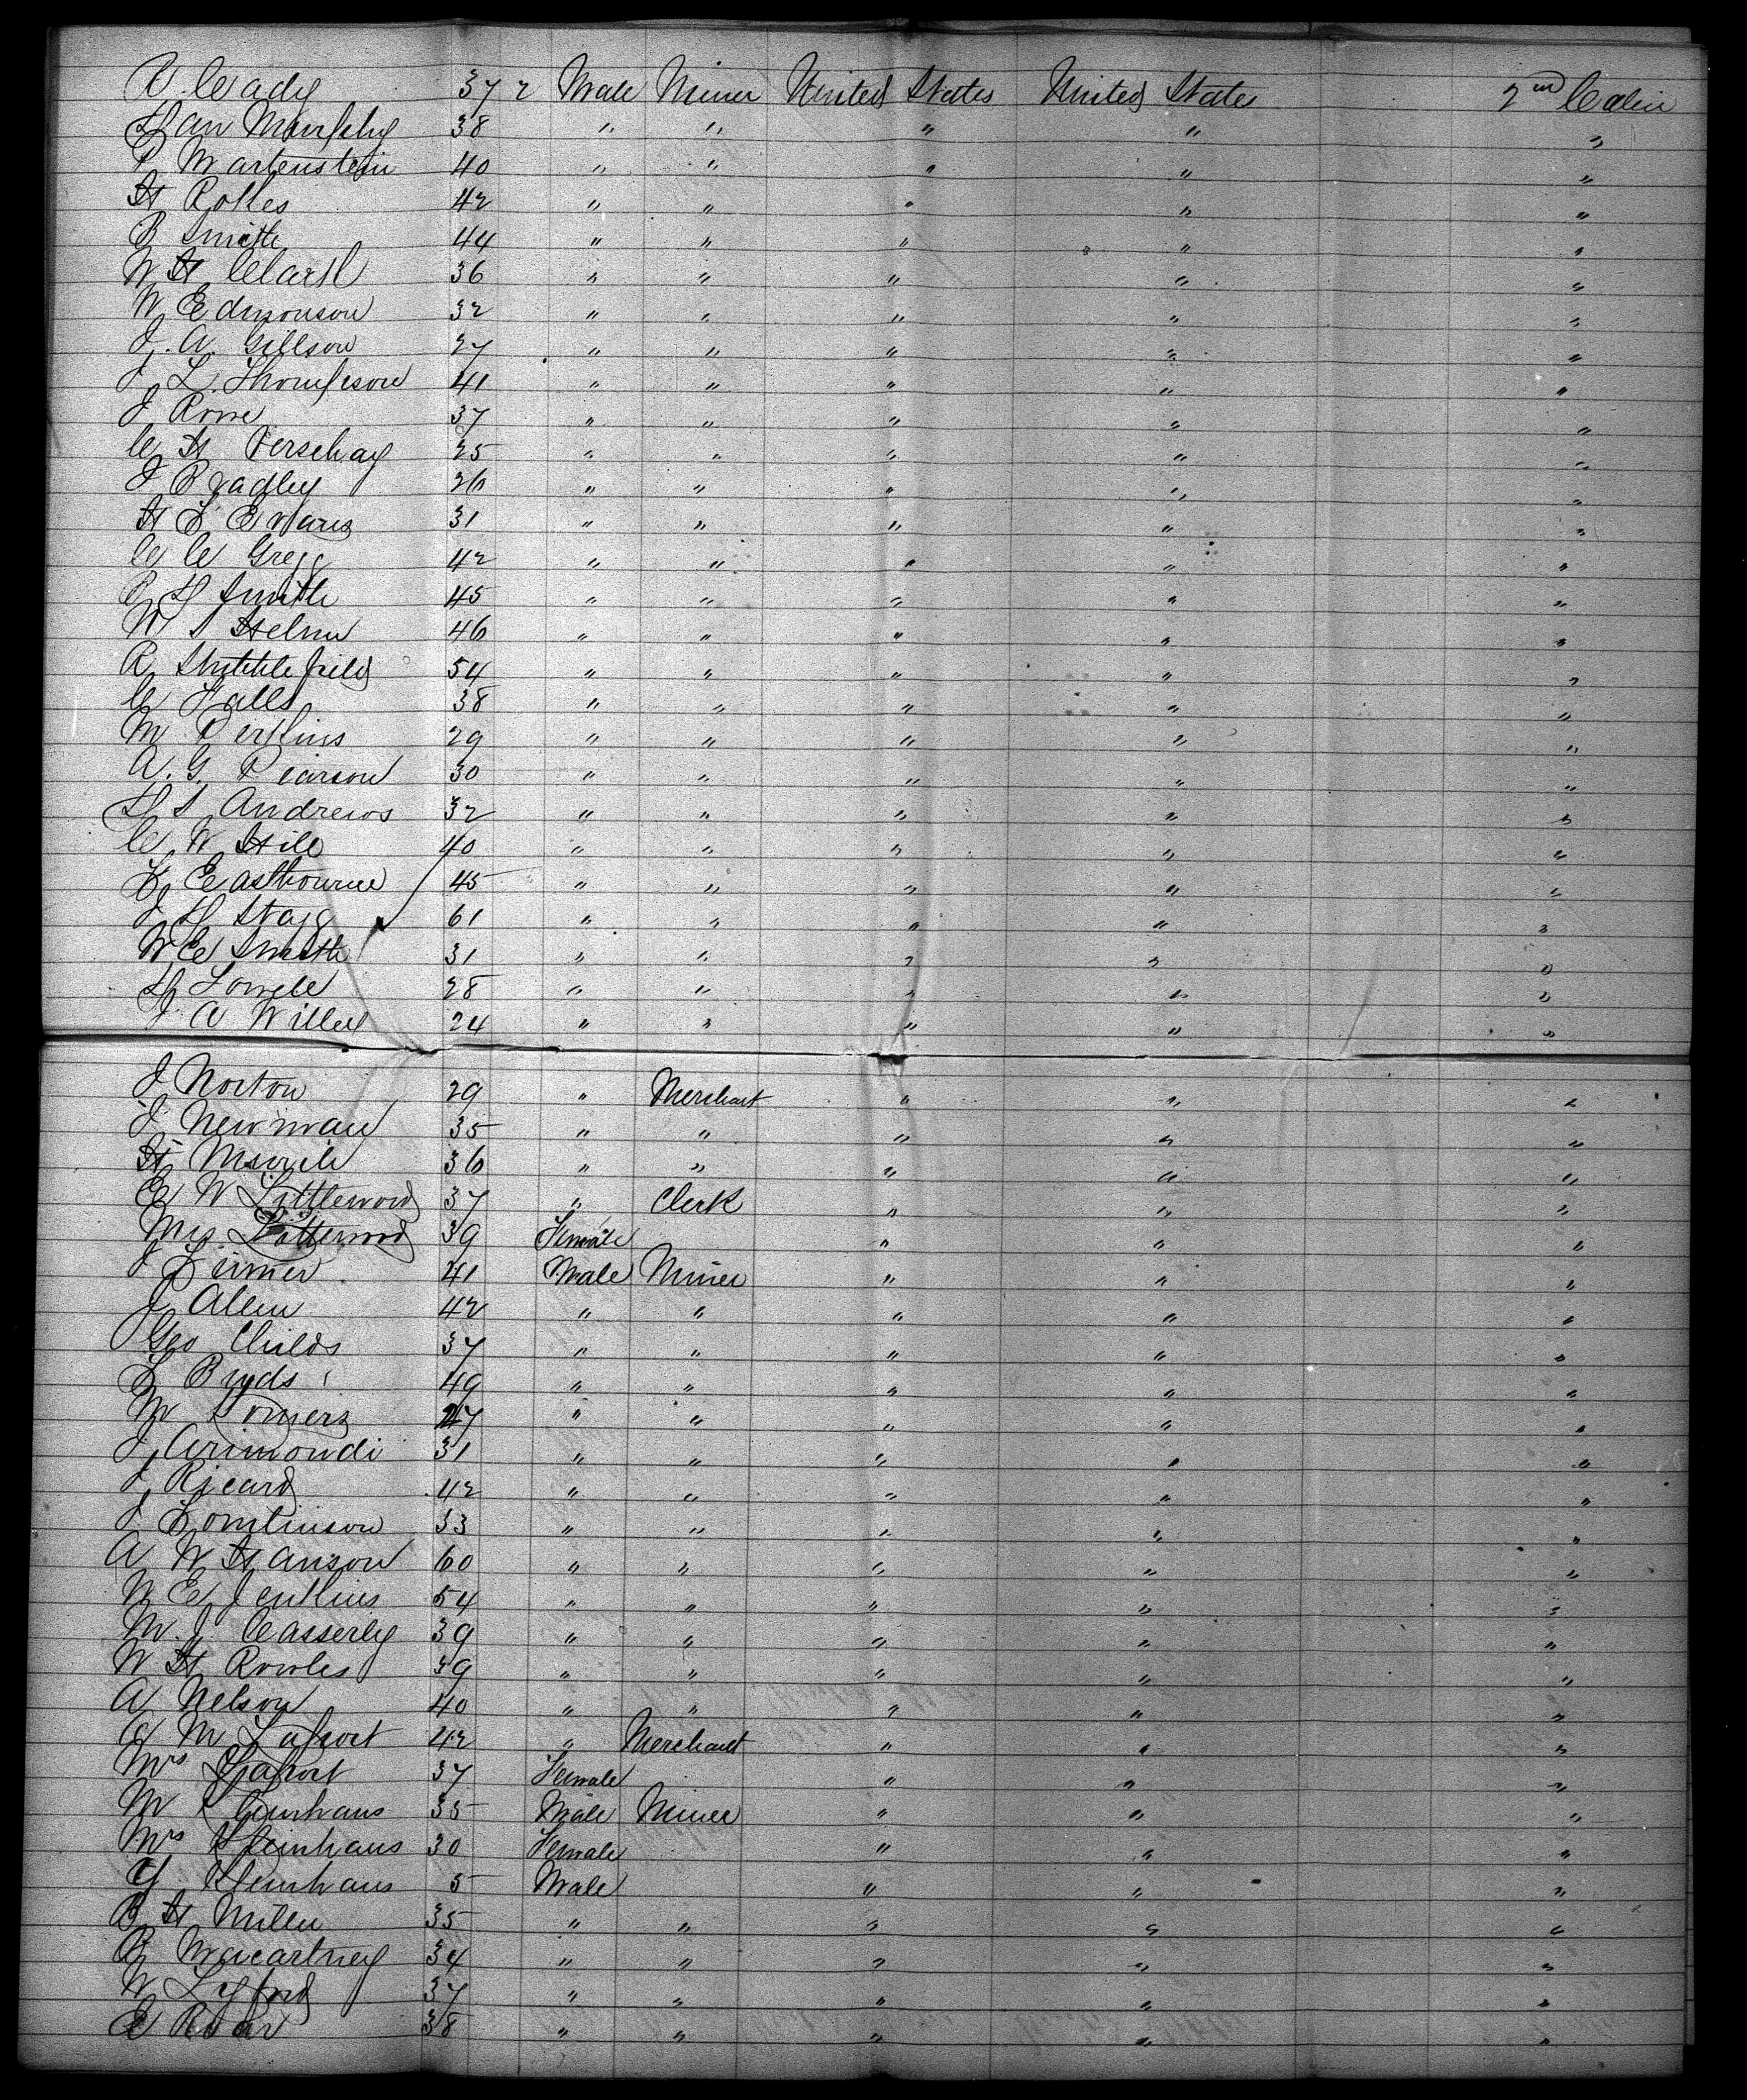 P. Cady 37 2 Male Miner United States United States 2nd Cabin
Dan Murphy 38 " " " " "
P Martenstein 40 " " " " "
H Rolles 42 " " " " "
B Smith 44 " " " " "
W H Clark 36 " " " " "
W Edmonson 32 " " " " "
J. A. Gillson 27 " " " " "
J L Thompson 41 " " " " "
J Rowe 37 " " " " "
C H Perschay 25 " " " " "
J Bradley 26 " " " " "
H L Evans 31 " " " " "
C C Gregg 42 " " " " "
P D Smith 45 " " " " "
W S Helm 46 " " " " "
R Shuttlefield 54 " " " " "
C Falls 38 " " " " "
M Perkins 29 " " " " "
A. G. Pearson 30 " " " " "
D S Andrews 32 " " " " "
C W Hill 40 " " " " "
L Eastbourne 45 " " " " "
J D Stagg 61 " " " " "
W E Smith 31 " " " " "
D Lowell 28 " " " " "
J A Willey 24 " " " " "
J Norton 29 " Merchant " " "
J Newman 35 " " " " "
H 36 " " " " "
E W Littlewood 37 " Clerk " " "
Mrs Littlewood 39 Female " " "
J 41 Male Miner " " "
J Allen 42 " " " " "
Geo Childs 37 " " " " "
L Byds 49 " " " " "
M Somers 27 " " " " "
J Arimondi 31 " " " " "
J Ricard 42 " " " " "
J Tomlinson 33 " " " " "
A W Hanson 60 " " " " "
W E Jenkins 54 " " " " "
M. J. Casserly 39 " " " " "
W H Rowles 39 " " " " "
A Nelson 40 " " " " "
A M Laport 42 " Merchant " " "
Mrs Laport 37 Female " " "
M Kleinhaus 35 Male Miner " " "
Mrs Kleinhaus 30 Female " " "
G Kleinhaus 5 Male " " "
B H Miller 35 " " " " "
R Macartney 34 " " " " "
W Lyford 37 " " " " "
38 " " " " "